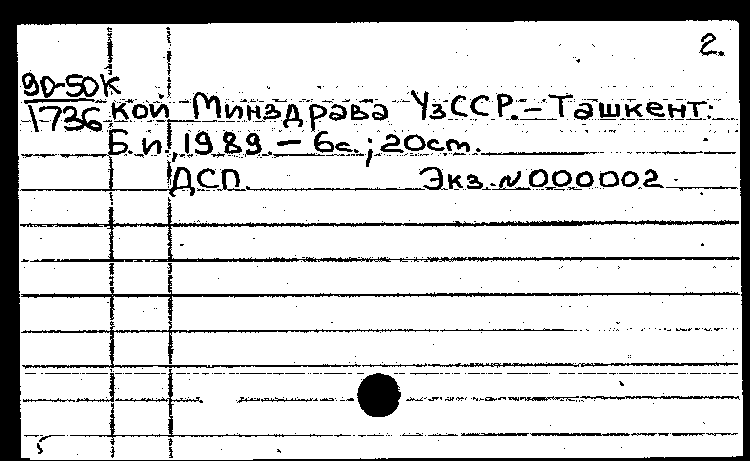 2.
90-50К
1736 кой Минздрава УзССР. – Ташкент:
Б.и., 1989. – 6с.; 20см.
ДСП. Экз. N 000002